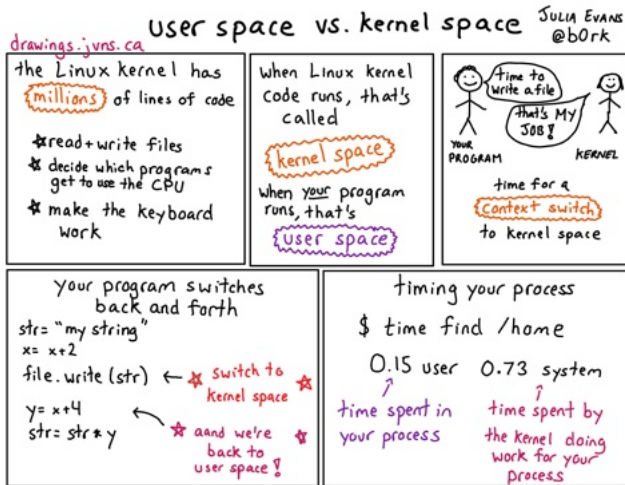 user space vs. kernel space
JULIA EVANS
@b0rk
drawings.jvns.ca
the Linux kernel has
millions of lines of code
★ read + write files
★ decide which programs
get to use the CPU
★ make the keyboard
work
when Linux kernel
code runs, that's
called
kernel space
when your program
runs, that's
user space
time to
write a file
that's MY
JOB!
YOUR
PROGRAM
KERNEL
time for a
context switch
to kernel space
your program switches
back and forth
str= "my string"
x= x+2
file.write(str) ← ★ switch to
kernel space ★
y= x+4
str= str * y
★ aand we're ★
back to
user space!
timing your process
$ time find /home
0.15 user 0.73 system
time spent in
your process
time spent by
the kernel doing
work for your
process